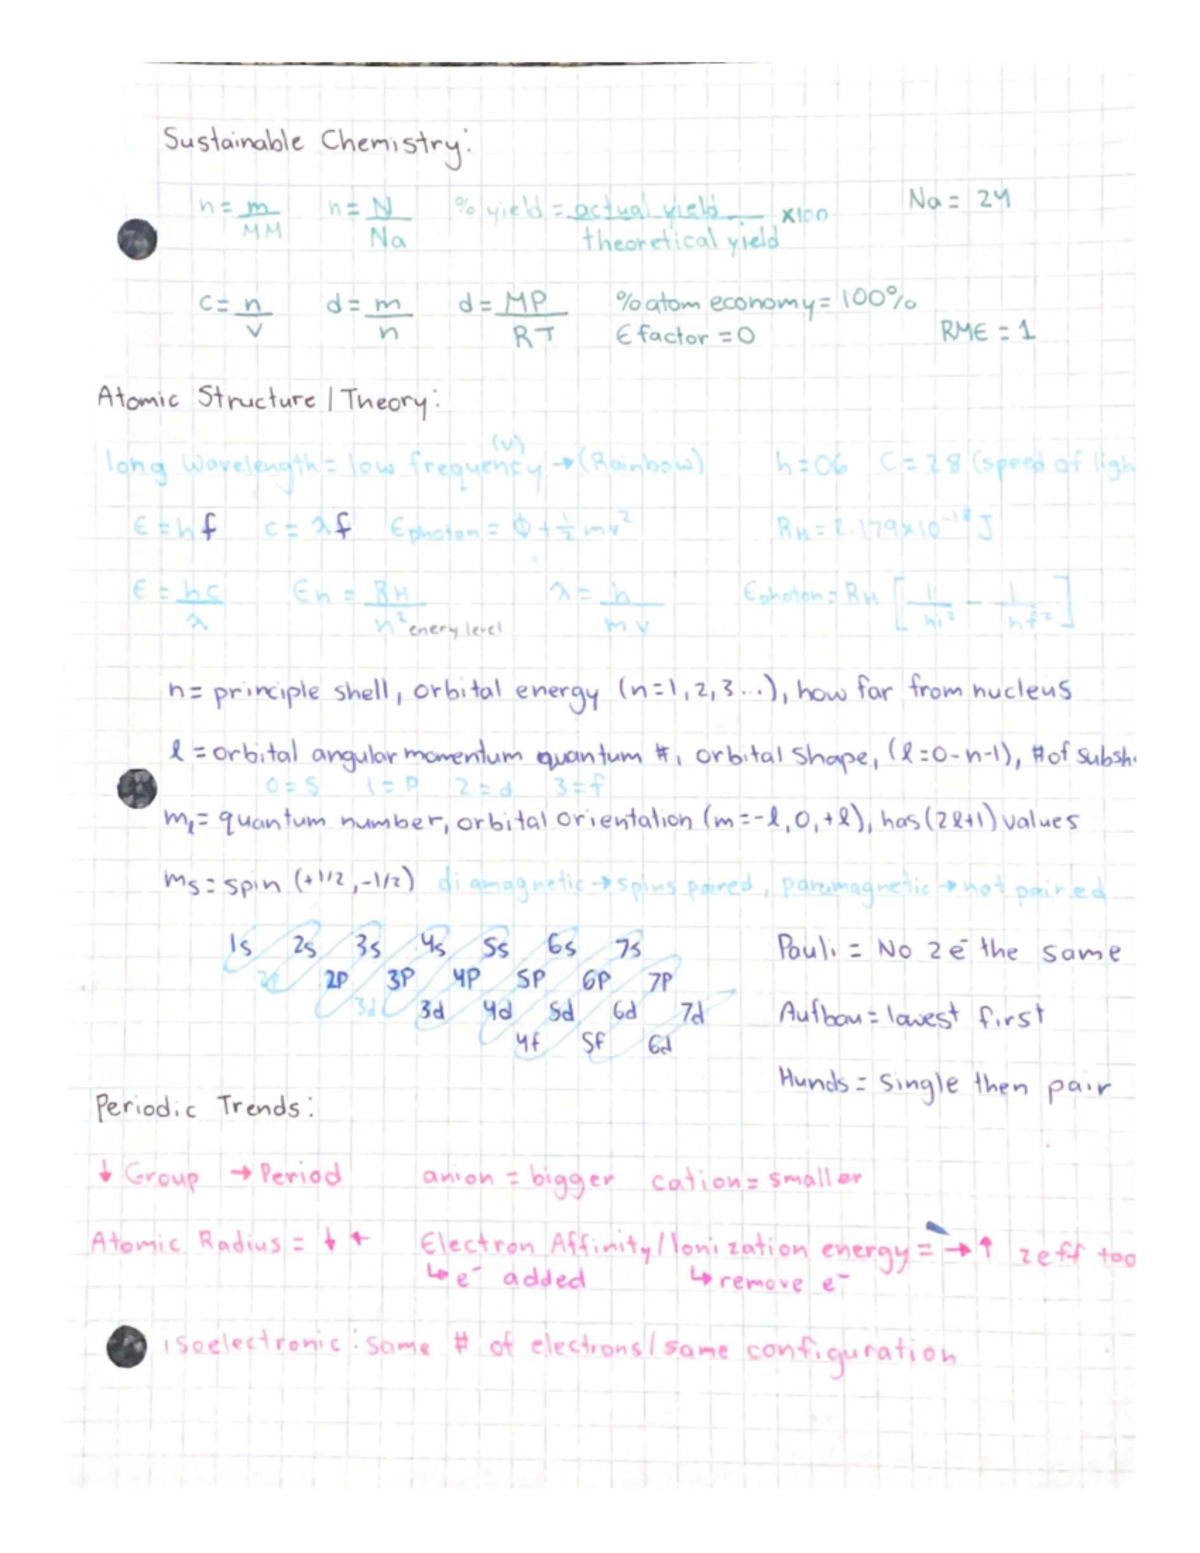 Sustainable Chemistry:
n = m/MM n = N/Na % yield = actual yield/theoretical yield x100 Na = 24
c = n/v d = m/n d = MP/RT % atom economy = 100%
E factor = 0 RME = 1
Atomic Structure / Theory:
(v)
long wavelength = low frequency → (Rainbow) h = 06 C = 28 (speed of ligh
E = hf c = λf Ephoton = Φ + 1/2 mv² RH = 2.179x10⁻¹⁸ J
E = hc/λ En = RH/n² energy level λ = h/mv Ephoton = RH [1/ni² - 1/nf²]
n = principle shell, orbital energy (n=1,2,3...), how far from nucleus
l = orbital angular momentum quantum #, orbital shape, (l=0-n-1), # of subsh
0=s 1=p 2=d 3=f
ml = quantum number, orbital orientation (m=-l,0,+l), has (2l+1) values
ms = spin (+1/2,-1/2) diamagnetic → spins paired, paramagnetic → not paired
1s 2s 3s 4s 5s 6s 7s Pauli = No 2e⁻ the same
2p 3p 4p 5p 6p 7p
3d 3d 4d 5d 6d 7d Aufbau = lowest first
4f 5f 6d
Hunds = single then pair
Periodic Trends:
↓ Group → Period anion = bigger cation = smaller
Atomic Radius = ↓ ← Electron Affinity/Ionization energy = → ↑ zeff too
↳ e⁻ added ↳ remove e⁻
isoelectronic: same # of electrons/same configuration